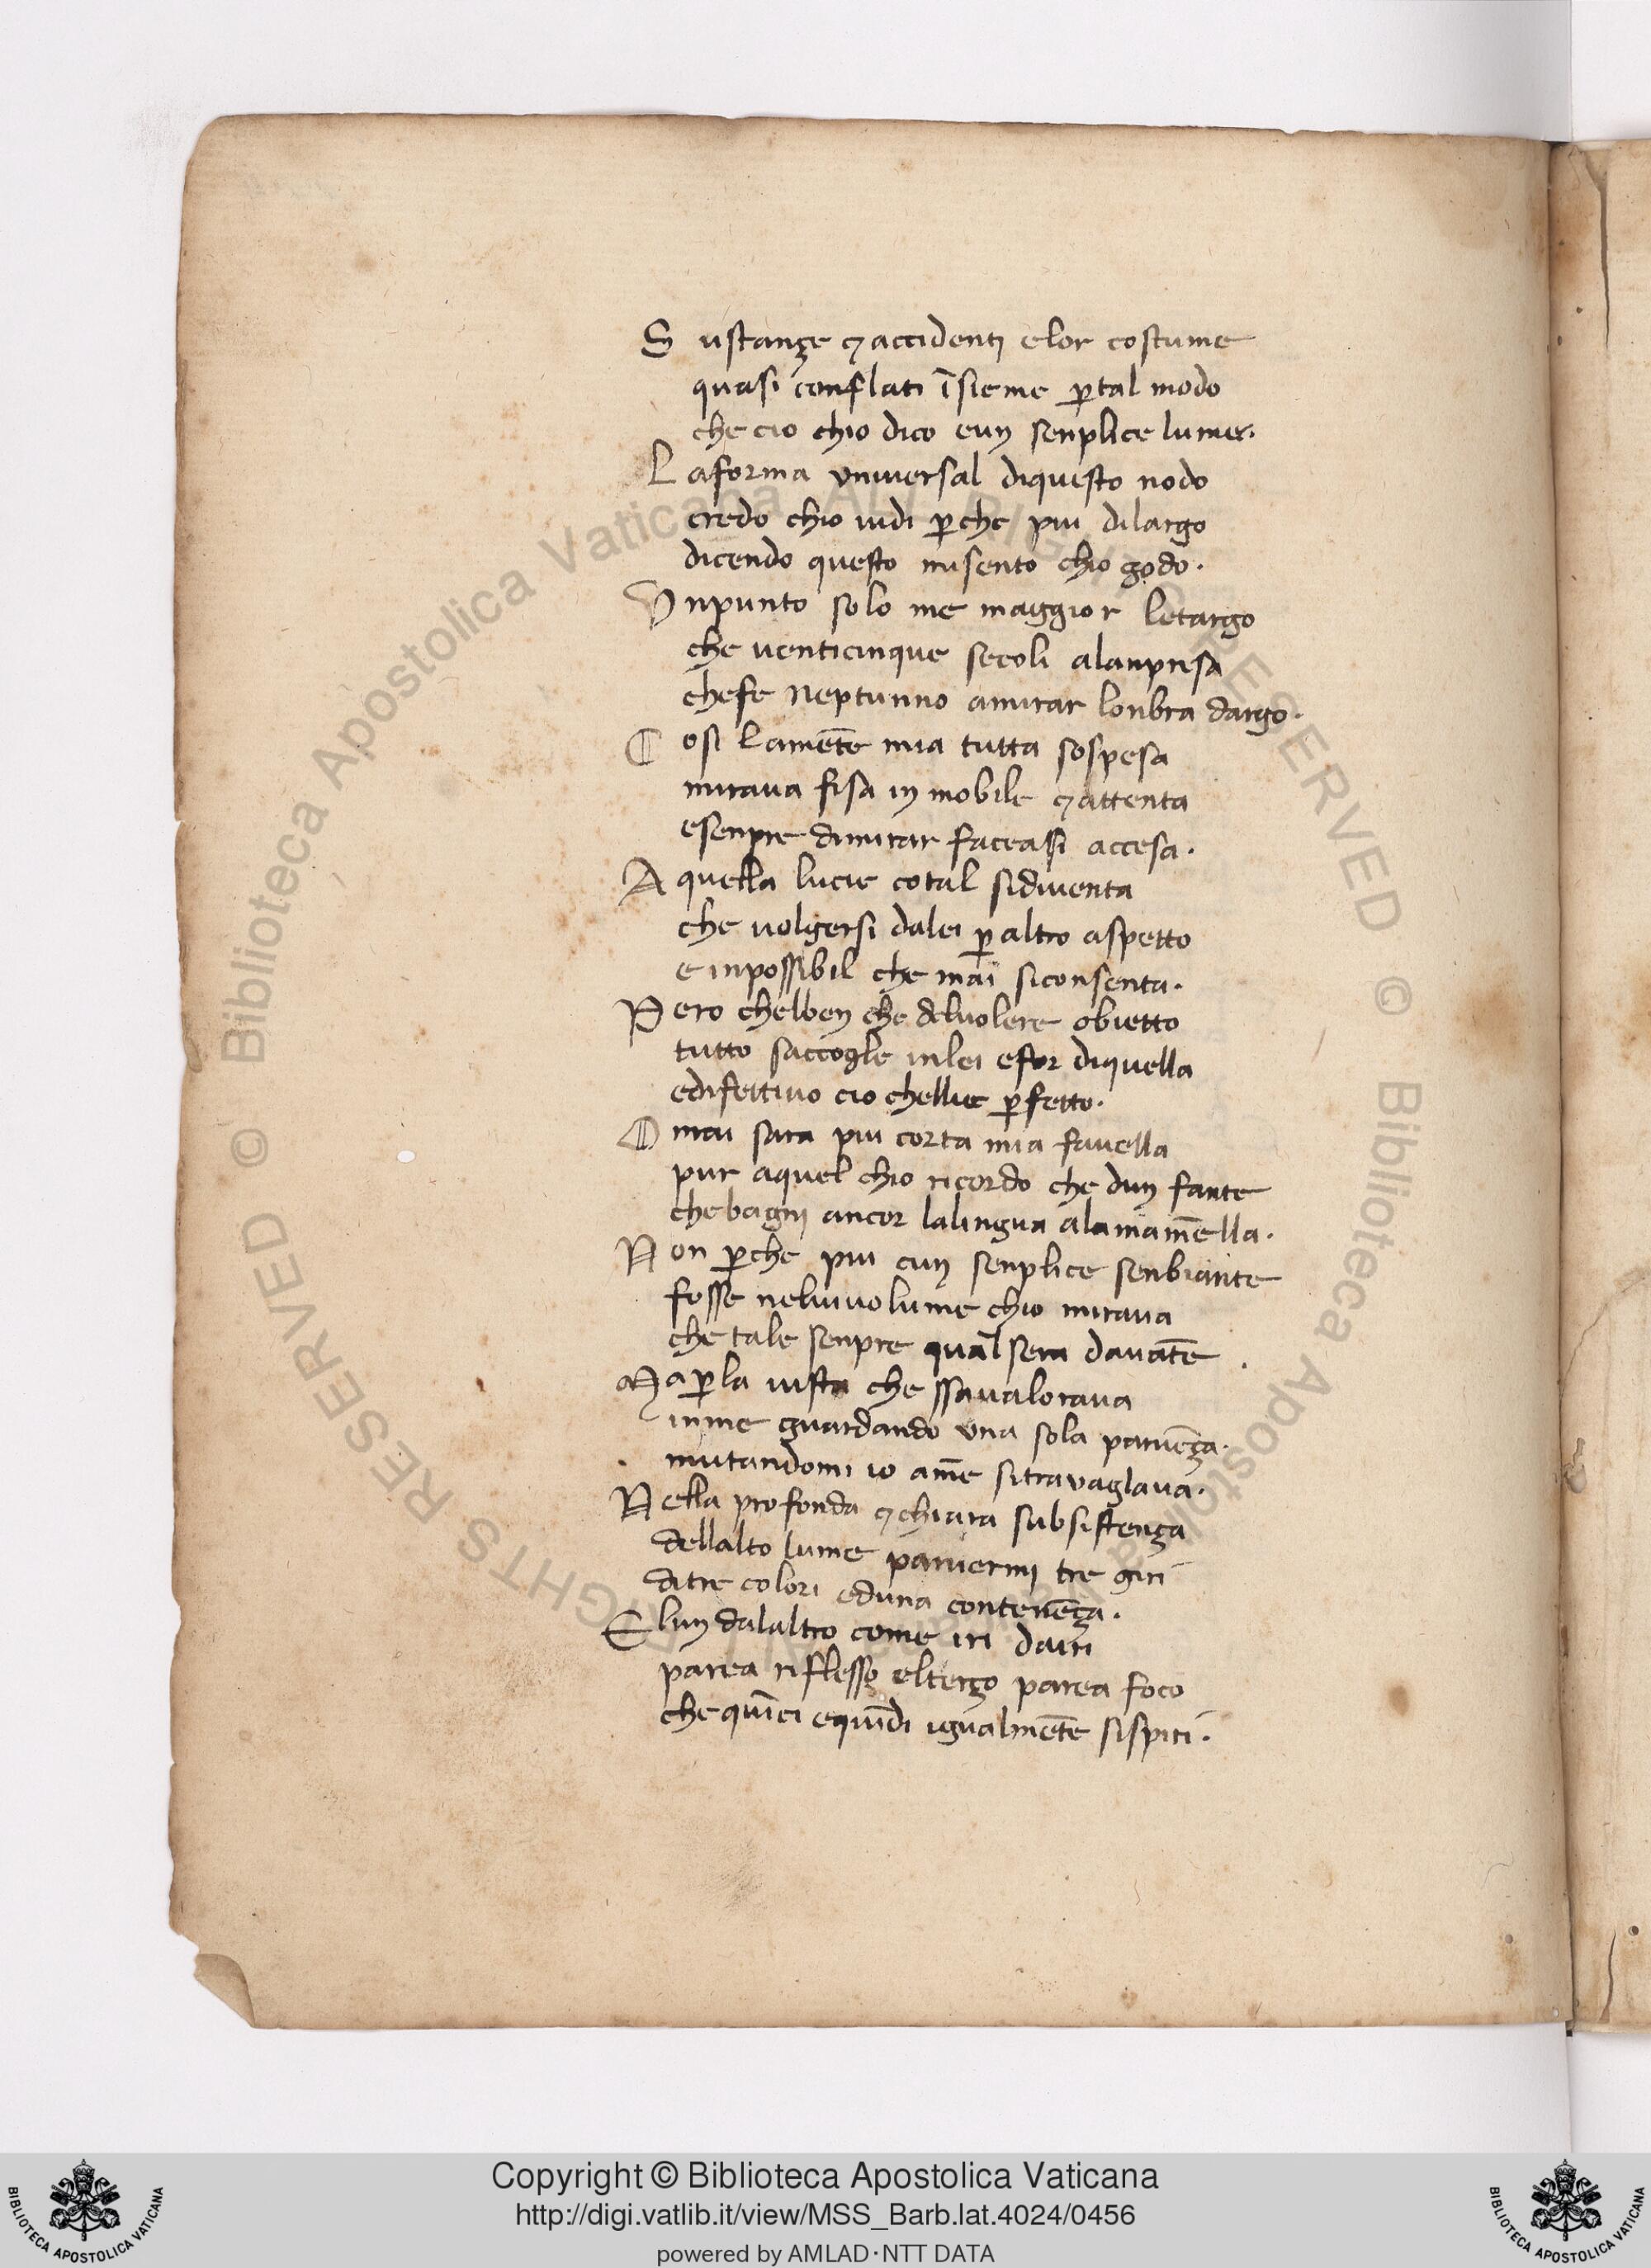 Sustançe ⁊ accidenti elor costume
quasi conflati īsieme ꝑtal modo
che cio chio dico eun senplice lume.
Laforma universal diquesto nodo
credo chio vidi ꝑche piu dilargo
dicendo questo misento chio godo.
Unpunto solo me maggior letargo
che venticinque secoli alanpresa
chefe neptunno amirar lonbra dargo.
Cosi lamēte mia tutta sospesa
mirava fisa in mobile ⁊ attenta
esenpre dimirar faceasi accesa.
Aquella lucie cotal sidiventa
che volgersi dalei ꝑ altro aspetto
e inpossibil che mai siconsenta.
Pero chelben che delvolere obietto
tutto saccogle inlei efor diquella
edifettivo cio chellie ꝑfetto.
Omai sara piu corta mia favella
pur aquel chio ricordo che dun fante
chebagni ancor lalingua alamamēlla.
Non ꝑche piu cun senplice senbiante
fosse nelvivolume chio mirava
che tale senpre qual sera davāte.
Maꝑla vista che ssavalorava
inme guardando una sola parvēça.
mutandomi io amē sitravaglava.
Nella profonda ⁊ chiara subsistença
dellalto lume parvermi tre giri
ditre colori eduna contenēça.
Elun dalaltro come iri dairi
parea riflesso elterço parea foco
che quīci equīdi igualmēte sispiri.
© Biblioteca Apostolica Vaticana ALL RIGHTS RESERVED © Biblioteca Apostolica Vaticana ALL RIGHTS RESERVED
Copyright © Biblioteca Apostolica Vaticana
http://digi.vatlib.it/view/MSS_Barb.lat.4024/0456
powered by AMLAD·NTT DATA
BIBLIOTECA APOSTOLICA VATICANA
BIBLIOTECA APOSTOLICA VATICANA